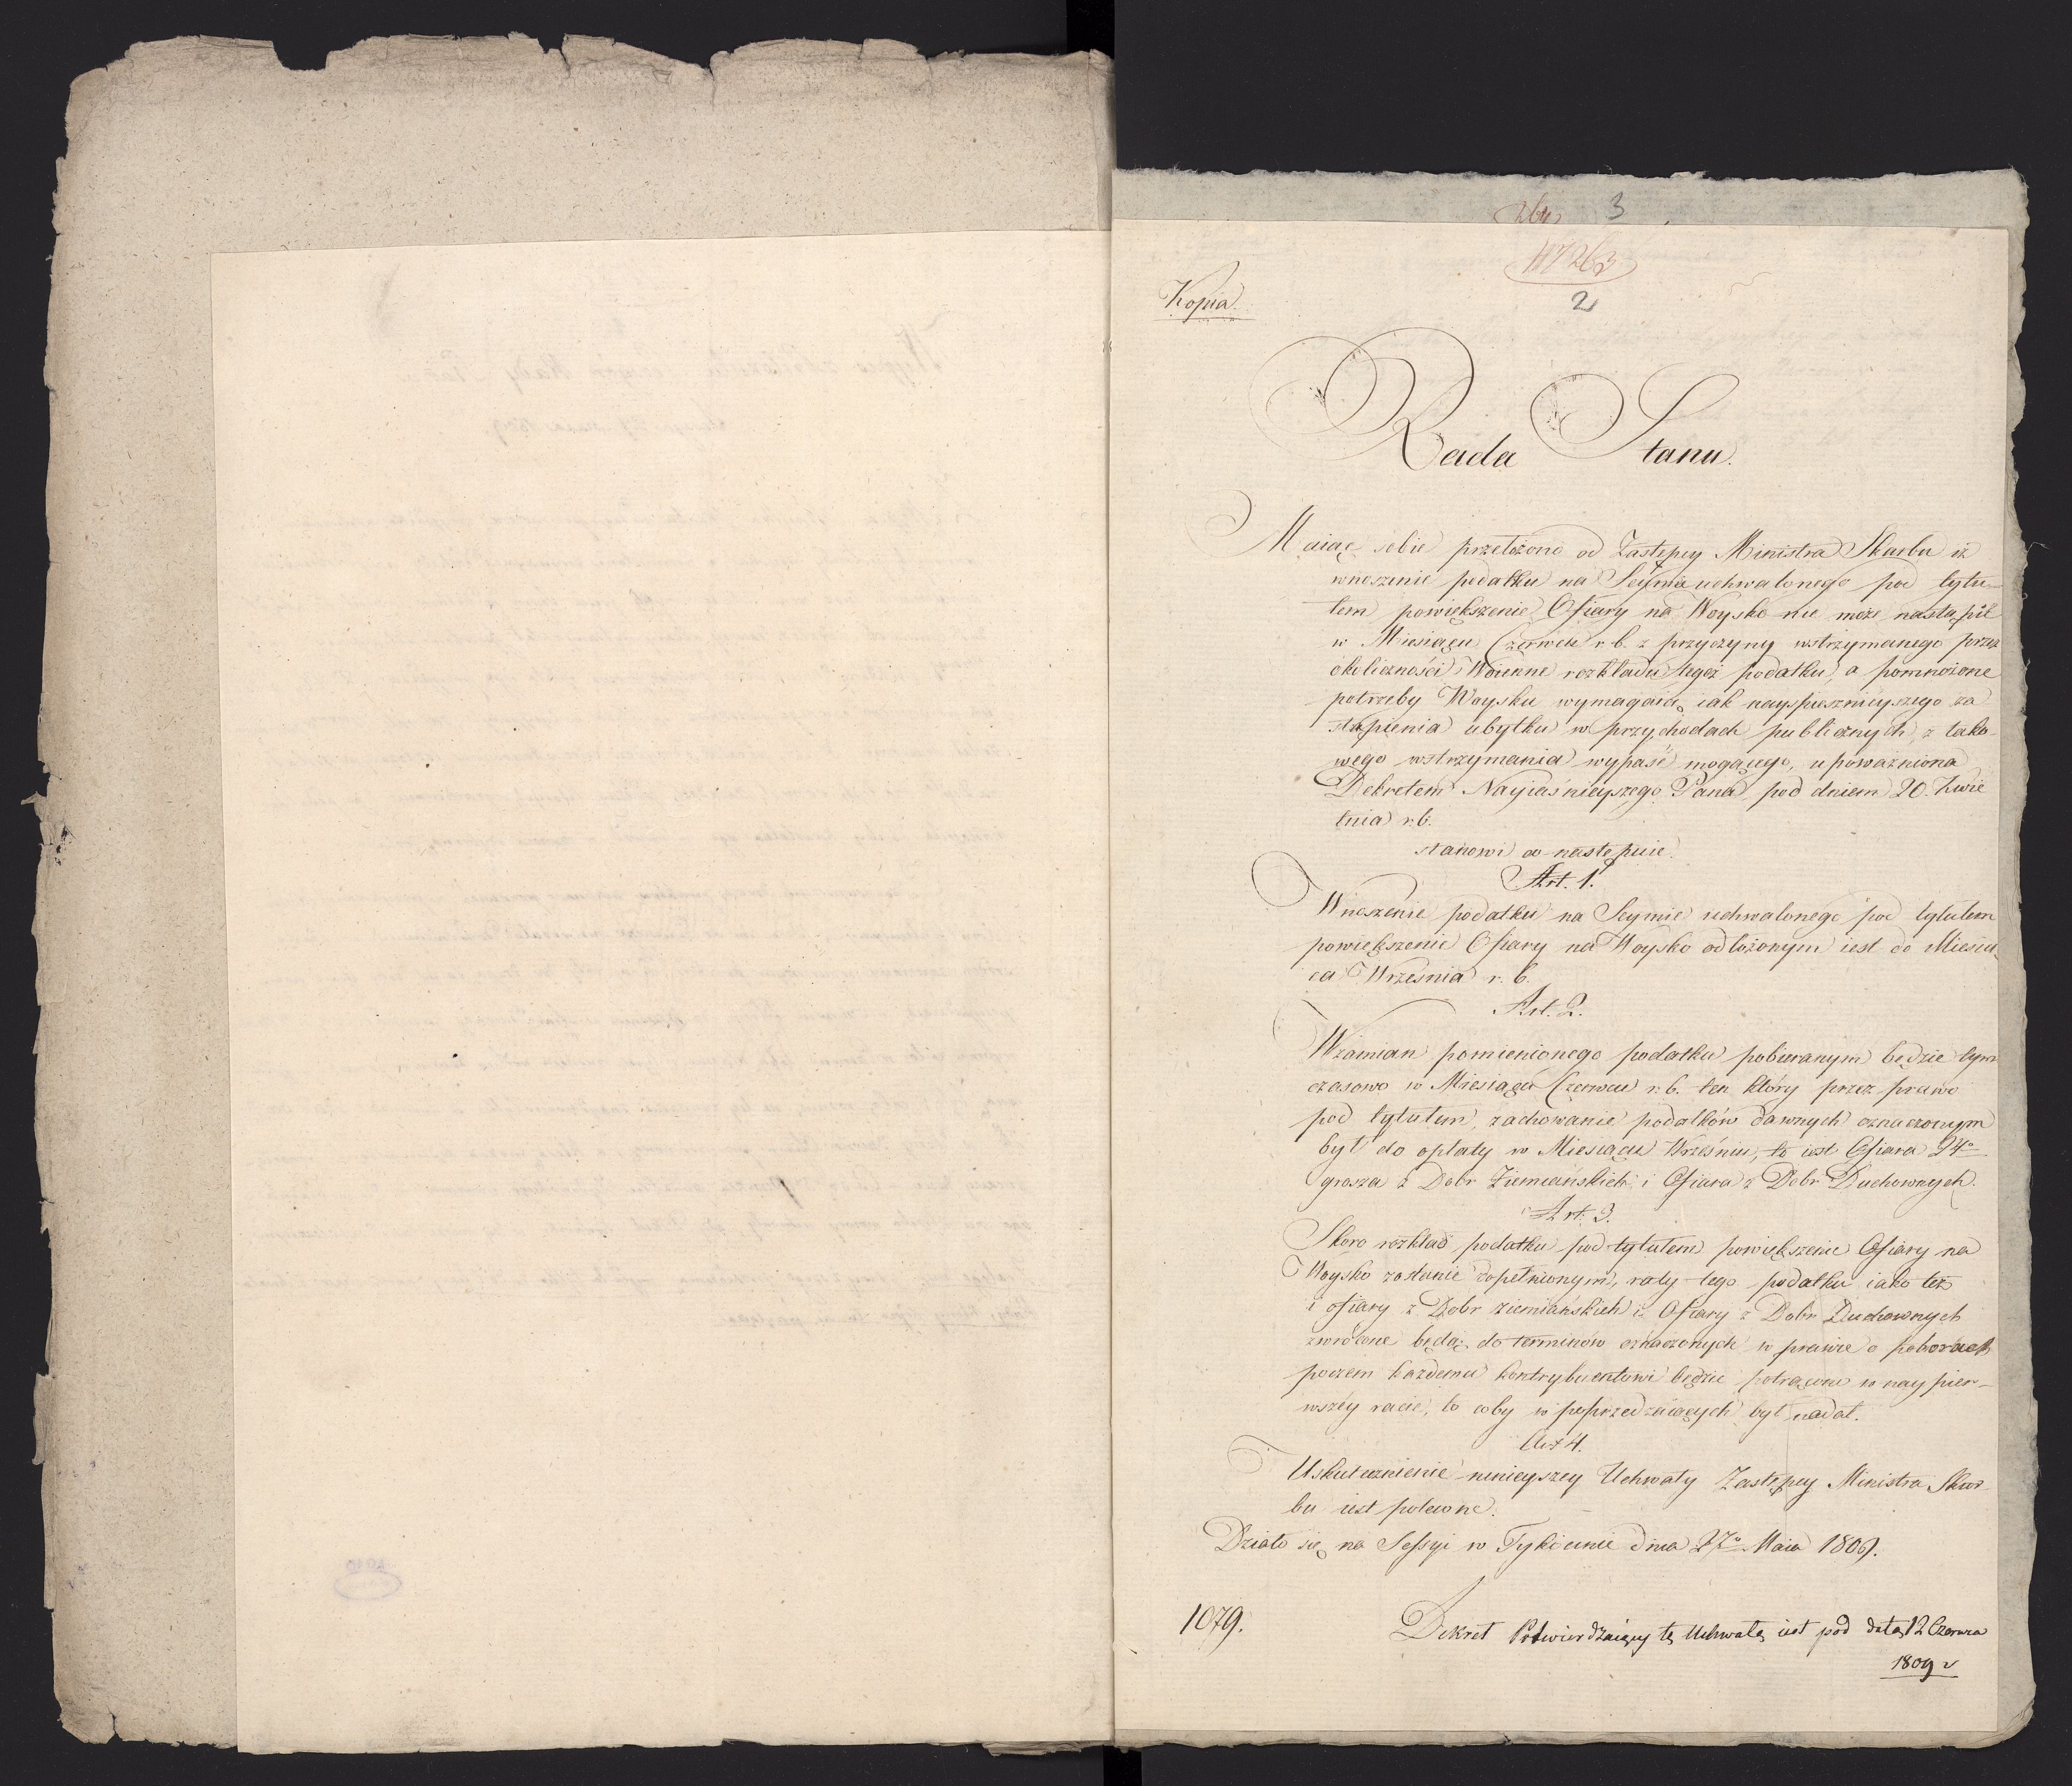 3
263
2
Kopia.
Rada Stanu.
Maiąc sobie przełożono od Zastępcy Ministra Skarbu iż
wnoszenie podatku na Seymie uchwalonego pod tytu-
łem powiększenie Ofiary na Woysko nie może nastąpić
w Miesiącu Czerwcu r. b. z przyczyny wstrzymanego przez
okoliczności Woienne rozkładu tegoż podatku, a pomnożone
potrzeby Woysku wymagaią iak nayspiesznieyszego za
stąpienia ubytku w przychodach publicznych, z tako-
wego wstrzymania wypaść mogącego, upoważniona
Dekretem Nayiaśnieyszego Pana pod dniem 20. Kwie
tnia r. b.
stanowi co następuie.
Art. 1.
Wnoszenie podatku na Seymie uchwalonego pod tytułem
powiększenie Ofiary na Woysko odłożonym iest do Miesią-
ca Września r. b.
Art. 2.
Wzamian pomienionego podatku pobieranym będzie tym
czasowo w Miesiącu Czerwcu r. b. ten który przez prawo
pod tytułem, zachowanie podatków dawnych oznaczonym
był do opłaty w Miesiącu Wrześniu, to iest Ofiara 24o
grosza z Dobr Ziemiańskich i Ofiara z Dobr Duchownych.
Art. 3.
Skoro rozkład podatku pod tytułem powiększenie Ofiary na
Woysko zostanie dopełnionym, raty tego podatku iako też
i ofiary z Dobr ziemiańskich i Ofiary z Dobr Duchownych
zwrócone będą do terminów oznaczonych w prawie o poborach
poczem każdemu kontrybuentowi będzie potrącone w naypier-
wszéy racie, to coby w poprzedzaiących był nadał.
Art 4.
Uskutecznienie ninieyszey Uchwały Zastępcy Ministra Skar-
bu iest polecone.
Działo się na Sessyi w Tykocinie dnia 27o Maia 1809.
1079.
Dekret Potwierdzaiący tę Uchwałę iest pod datą 12 Czerwca
1809 r